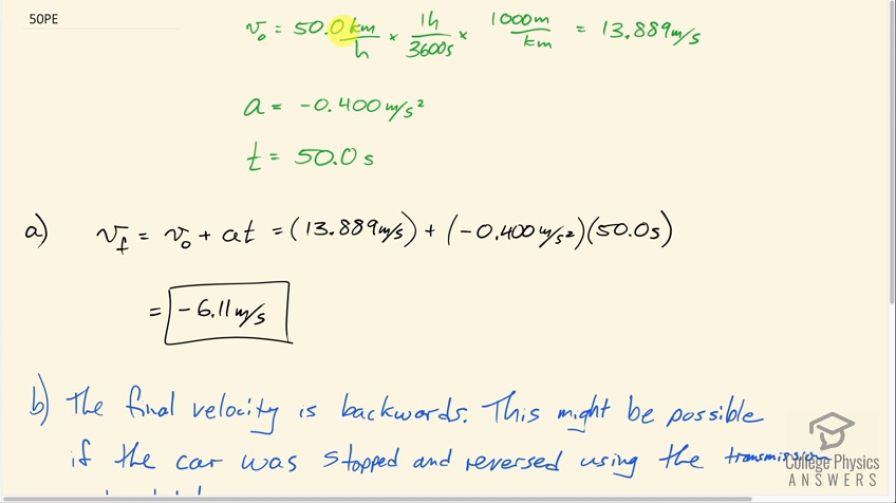 50PE
v₀ = 50.0 km/h × 1h/3600s × 1000m/km = 13.889m/s
a = -0.400m/s²
t = 50.0 s
a) v_f = v₀ + at = (13.889m/s) + (-0.400m/s²)(50.0s)
= -6.11m/s
b) The final velocity is backwards. This might be possible
if the car was stopped and reversed using the transmission
College Physics
ANSWERS